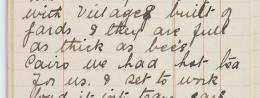 with Villages built of
fards & they are full
as thick as bee's
Cairo we had hot tea
for us. I set to work